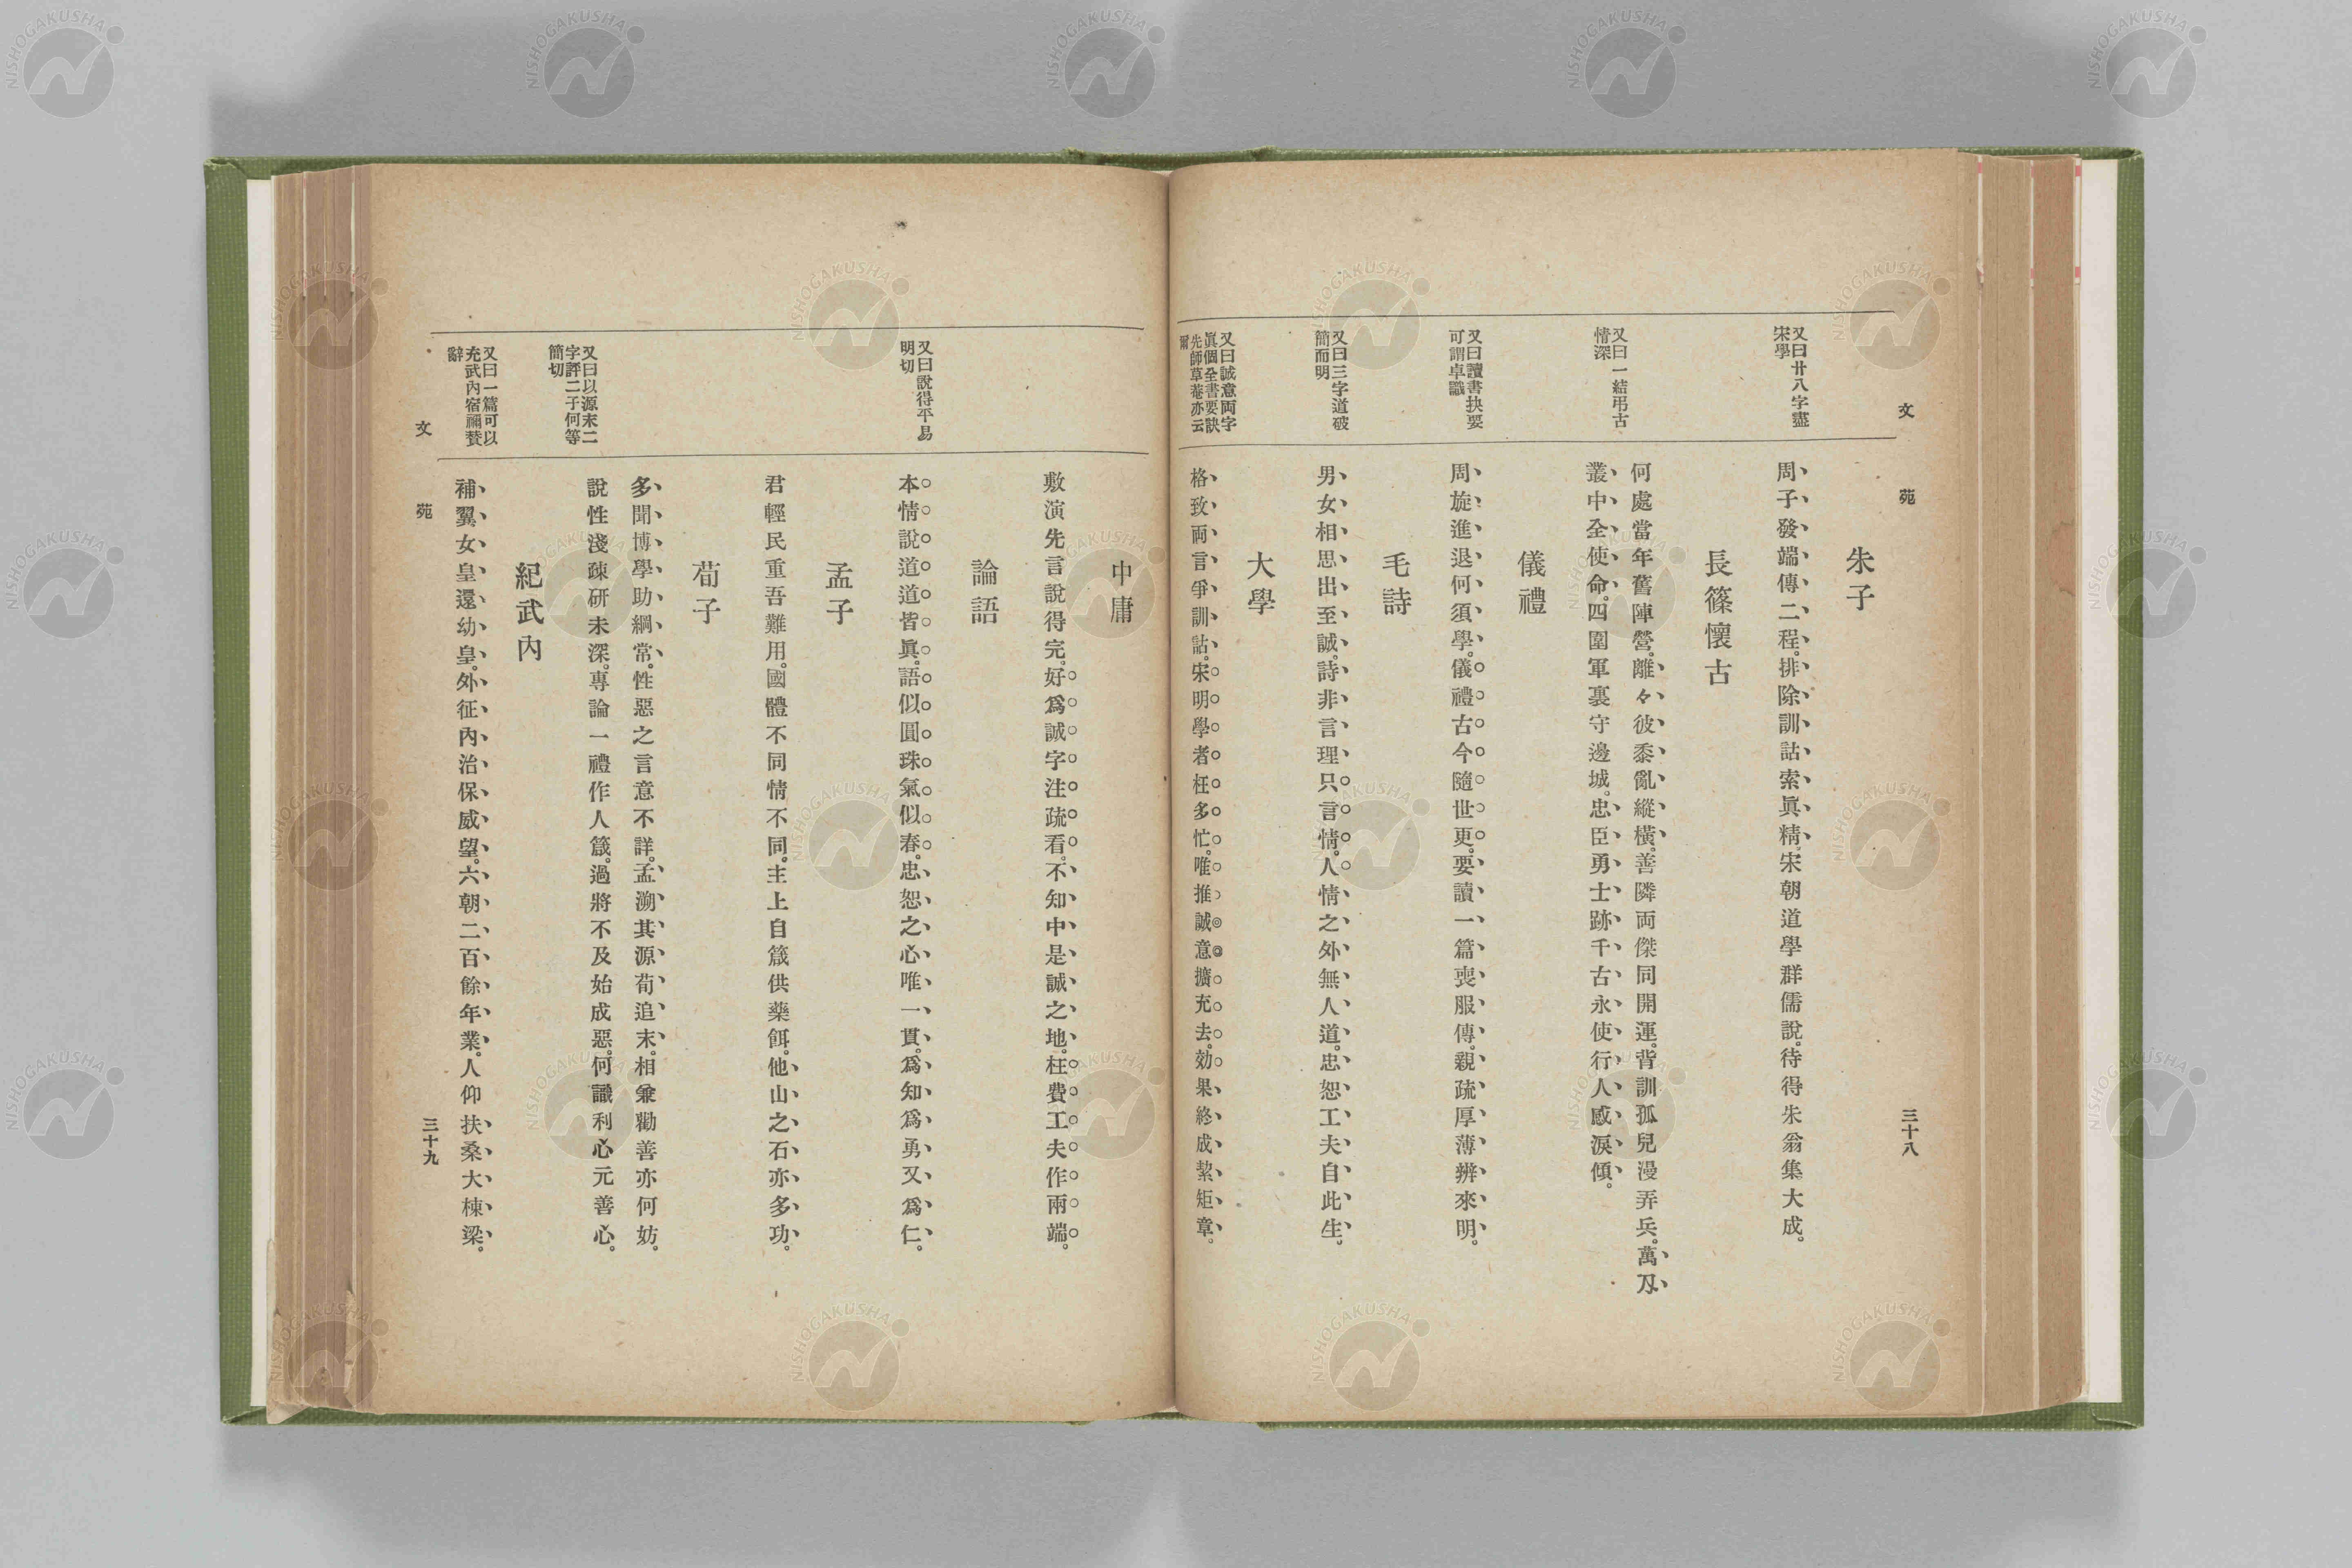 文苑
三十八
又曰廿八字盡
宋學
又曰一結弔古
情深
又曰讀書抉要
可謂卓識
又曰三字道破
簡而明
又曰誠意両字
眞個全書要訣
先師草菴亦云
爾
朱子
周子發端傳二程。排除訓詁索眞精。宋朝道學群儒說。待得朱翁集大成。
長篠懷古
何處當年舊陣營。離々彼黍亂縱橫。善隣両傑同開運。背訓孤兒漫弄兵。萬刄
叢中全使命。四圍軍裏守邊城。忠臣勇士跡千古。永使行人感淚傾。
儀禮
周旋進退何須學。儀禮古今隨世更。要讀一篇喪服傳。親疏厚薄辨來明。
毛詩
男女相思出至誠。詩非言理只言情。人情之外無人道。忠恕工夫自此生。
大學
格致両言爭訓詁。宋明學者枉多忙。唯推誠意擴充去。効果終成絜矩章。
又曰說得平易
明切
又曰以源末二
字評二子何等
簡切
又曰一篇可以
充武內宿禰贊
辭
中庸
敷演先言說得完。好爲誠字注疏看。不知中是誠之地。枉費工夫作兩端。
論語
本情說道道皆眞。語似圓珠氣似春。忠恕之心唯一貫。爲知爲勇又爲仁。
孟子
君輕民重吾難用。國體不同情不同。主上自箴供藥餌。他山之石亦多功。
荀子
多聞博學助綱常。性惡之言意不詳。孟溯其源荀追末。相兼勸善亦何妨。
說性淺疎研未深。專論一禮作人箴。過將不及始成惡。何識利心元善心。
紀武內
補翼女皇還幼皇。外征內治保威望。六朝二百餘年業。人仰扶桑大棟梁。
文苑
三十九
NISHOGAKUSHA